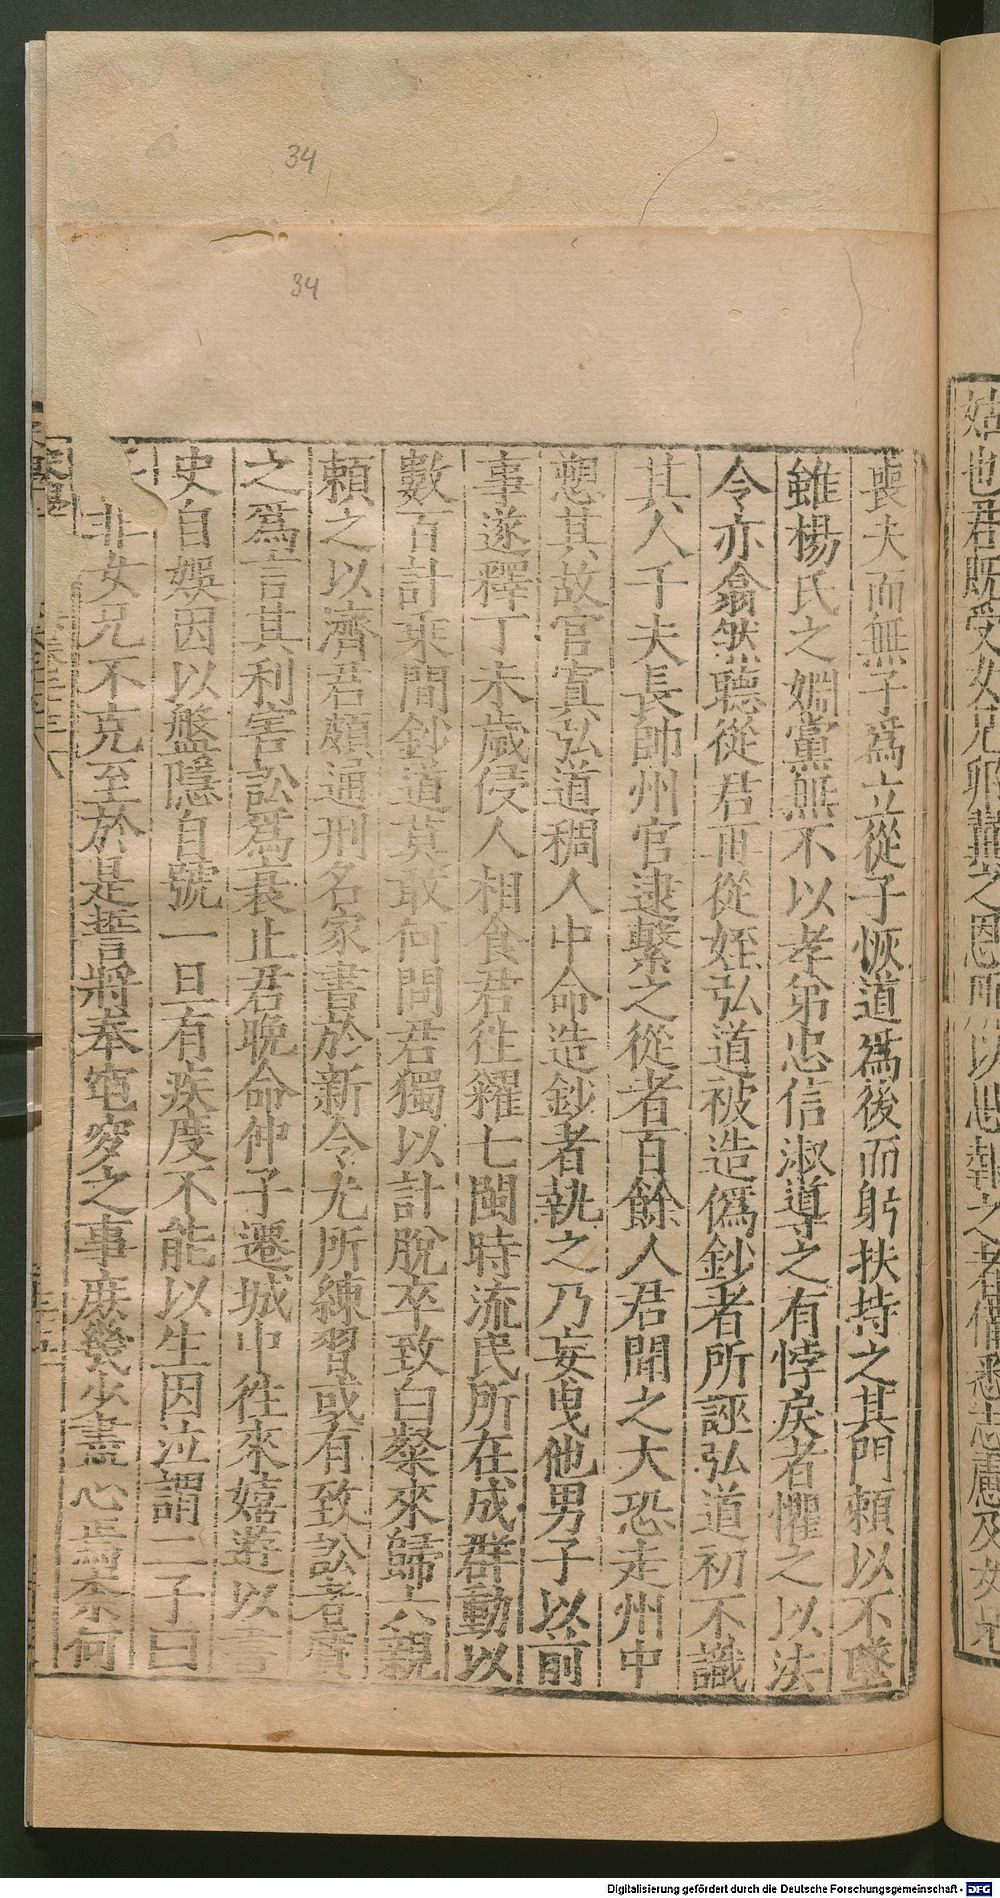 34
34
喪夫而無子爲立從子恢道爲後而躬扶持之其門頼以不墜
雖楊氏之姻黨無不以孝弟忠信淑導之有悖戾者懼之以法
令亦翕然聽從君再從姪弘道被造偽鈔者所誣弘道初不識
其人千夫長帥州官逮繫之從者百餘人君聞之大恐走州中
愬其故官寘弘道稠人中命造鈔者執之乃妄曳他男子以前
事遂釋丁未歲侵人相食君往糴七閩時流民所在成群動以
數百計乘間鈔道莫敢何問君獨以計脫卒致白粲來歸六親
頼之以濟君頗通刑名家書於新令尤所練習或有致訟者質
之爲言其利害訟爲衰止君晚命仲子遷城中往來嬉遊以書
史自娛因以盤隱自號一旦有疾度不能以生因泣謂二子曰
非女兄不克至於是誓將奉窀穸之事庶幾少盡心焉奈何
姑也君既受女兄卵翼之恩所以思報之者備悉志慮及女兄
Digitalisierung gefördert durch die Deutsche Forschungsgemeinschaft - DFG